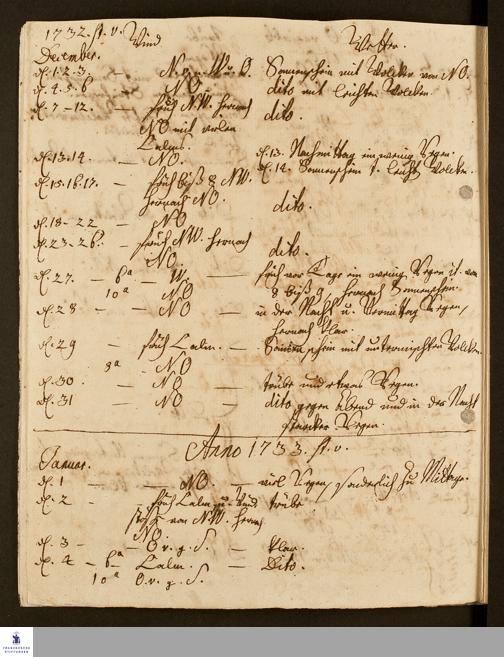 1732. st. v. Wind Wetter.
December.
d. 1. 2. 3. – N. O. Sonnenschein mit Wolcken von NO.
d. 4. 5. 6 – NO – dito mit leichten Wolcken.
d. 7-12. – früh N.W. hernach dito.
NO mit vielen
Calms.
d. 13. 14. – NO. d. 13. Nachmittag ein wenig Regen.
d. 14. Sonnenschein leicht Wolcken.
d. 15. 16. 17. – früh biß 8 N.W.
hernach NO. dito.
d. 18-22 – NO
d. 23-26. – früh N.W. hernach dito.
NO.
d. 27. – 6a – W. – früh vor Tage ein wenig Regen
10a NO 8 biß 9 hernach Sonnenschein.
d. 28 – – NO – in der Nacht u. Vormittag Regen,
hernach klar.
d. 29 – früh Calm. – Sonnenschein mit untermischten Wolcken.
9a – NO
d. 30. – NO – trübe und etwas Regen.
d. 31 NO – dito gegen Abend und in der Nacht
starcker Regen.
Anno 1733. st. v.
Januar.
d. 1 – NO. – viel Regen, sonderlich zu Mittage.
d. 2 – früh Calm u. Wind trübe
von N.W. hernach
NO.
d. 3 – O. v. z. S. – klar.
d. 4 – 6a – Calm. – Dito.
10a O. v. z. S.
FRANCKESCHE
STIFTUNGEN